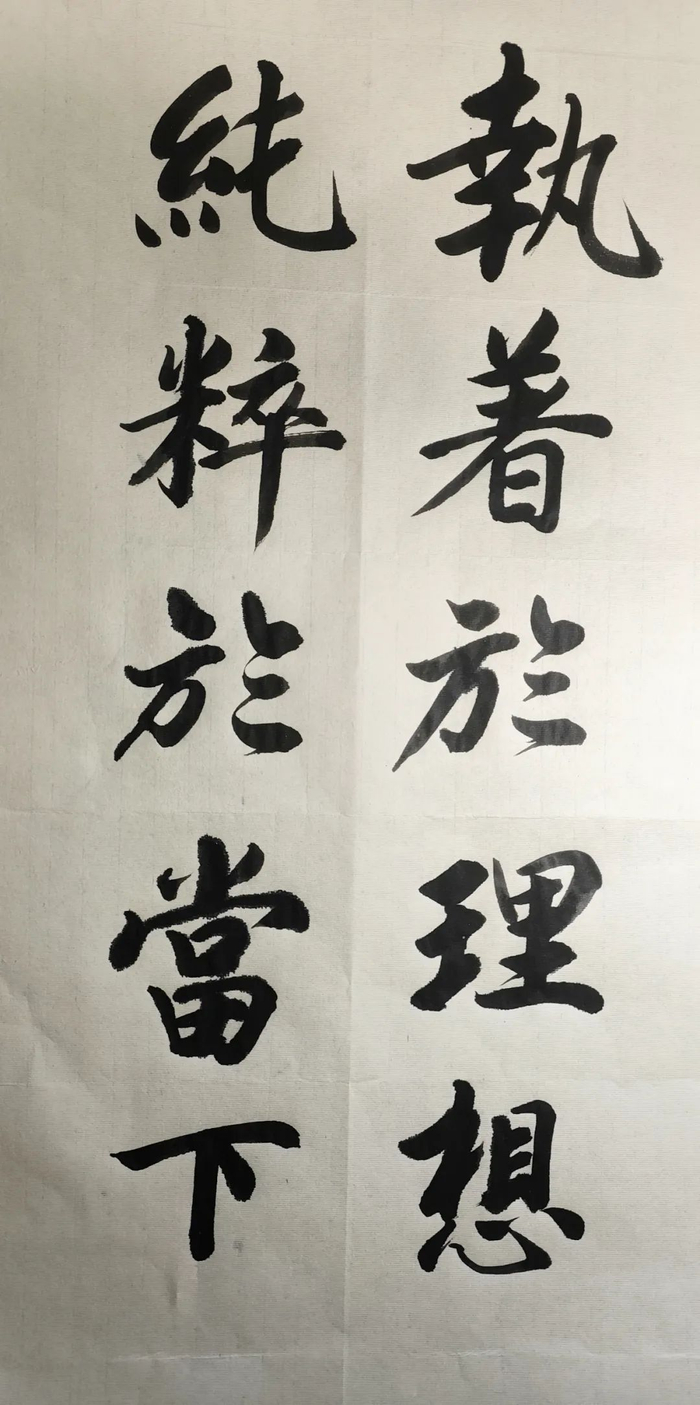 執着於理想
純粹於當下